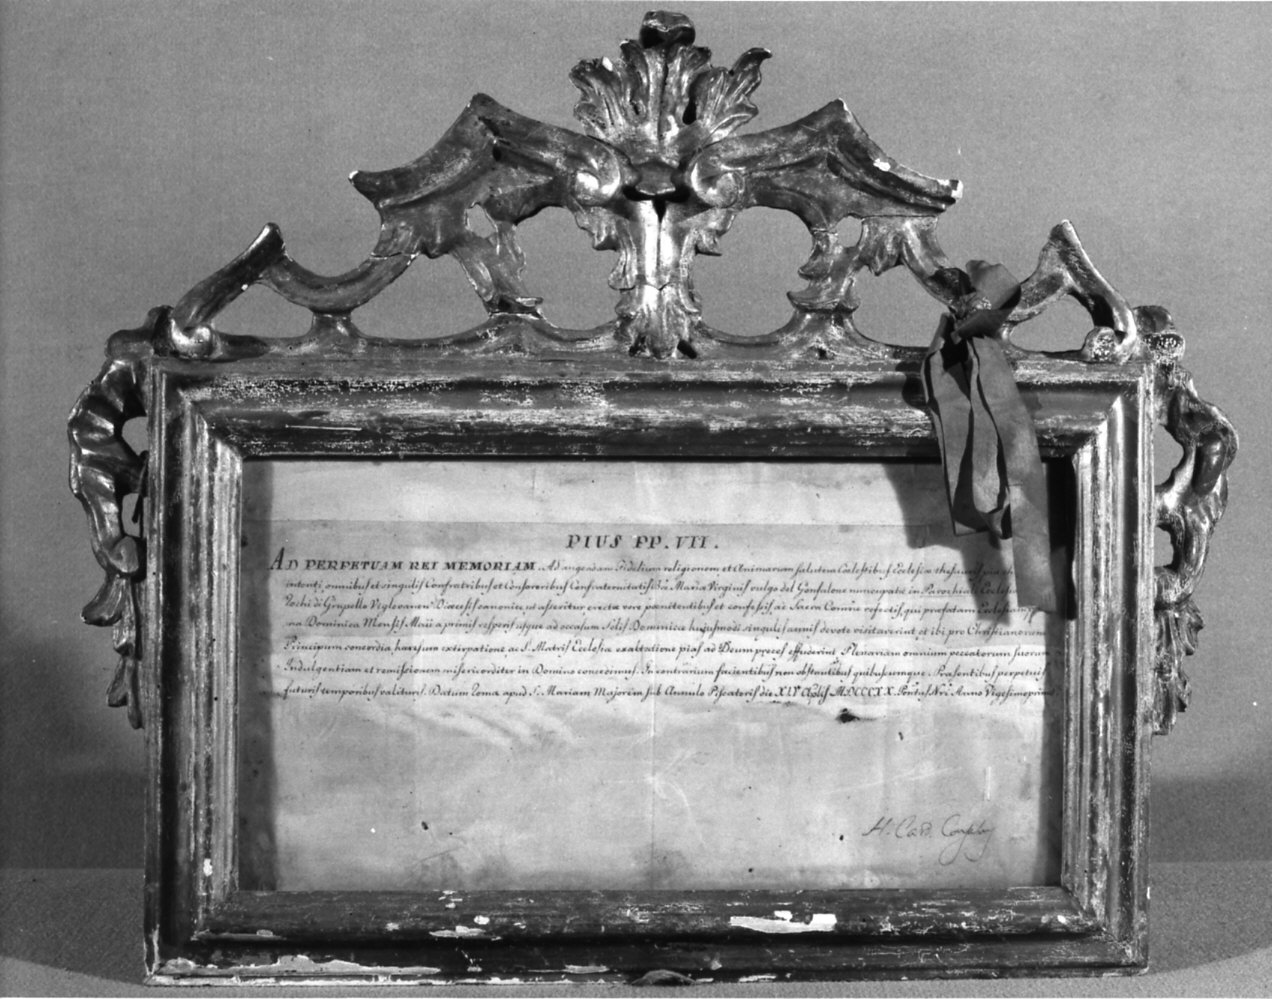 PIUS PP. VII.
AD PERPETUAM REI MEMORIAM. Ad augendam Fidelium religionem et Animarum salutem Coelestibus Ecclesiæ thesauris pia
intenti, omnibus et singulis Confratribus et Consororibus Confraternitatis Bæ Mariæ Virginis vulgo del Gonfalone nuncupatæ in Parochiali Ecclesia
Loci di Gropello Viglevanen Dioecesis canonice, ut asseritur erectæ vere poenitentibus et confessis ac Sacra Comne refectis, qui præfatam Ecclesiam
na Dominica Mensis Maii a primis vesperis usque ad occasum Solis Dominicæ hujusmodi singulis annis devote visitaverint et ibi pro Christianorum
Principum concordia hæresum extirpatione ac S. Matris Ecclesiæ exaltatione pias ad Deum preces effuderint Plenariam omnium peccatorum suorum
Indulgentiam et remissionem misericorditer in Domino concedimus. In contrarium facientibus non obstantibus quibuscumque. Præsentibus perpetuis
futuris temporibus valituris. Datum Romæ apud S. Mariam Majorem sub Annulo Piscatoris die XIV Aplis MDCCCXX. Pontus Nri Anno Vigesimoprimo
H. Card. Consalvi